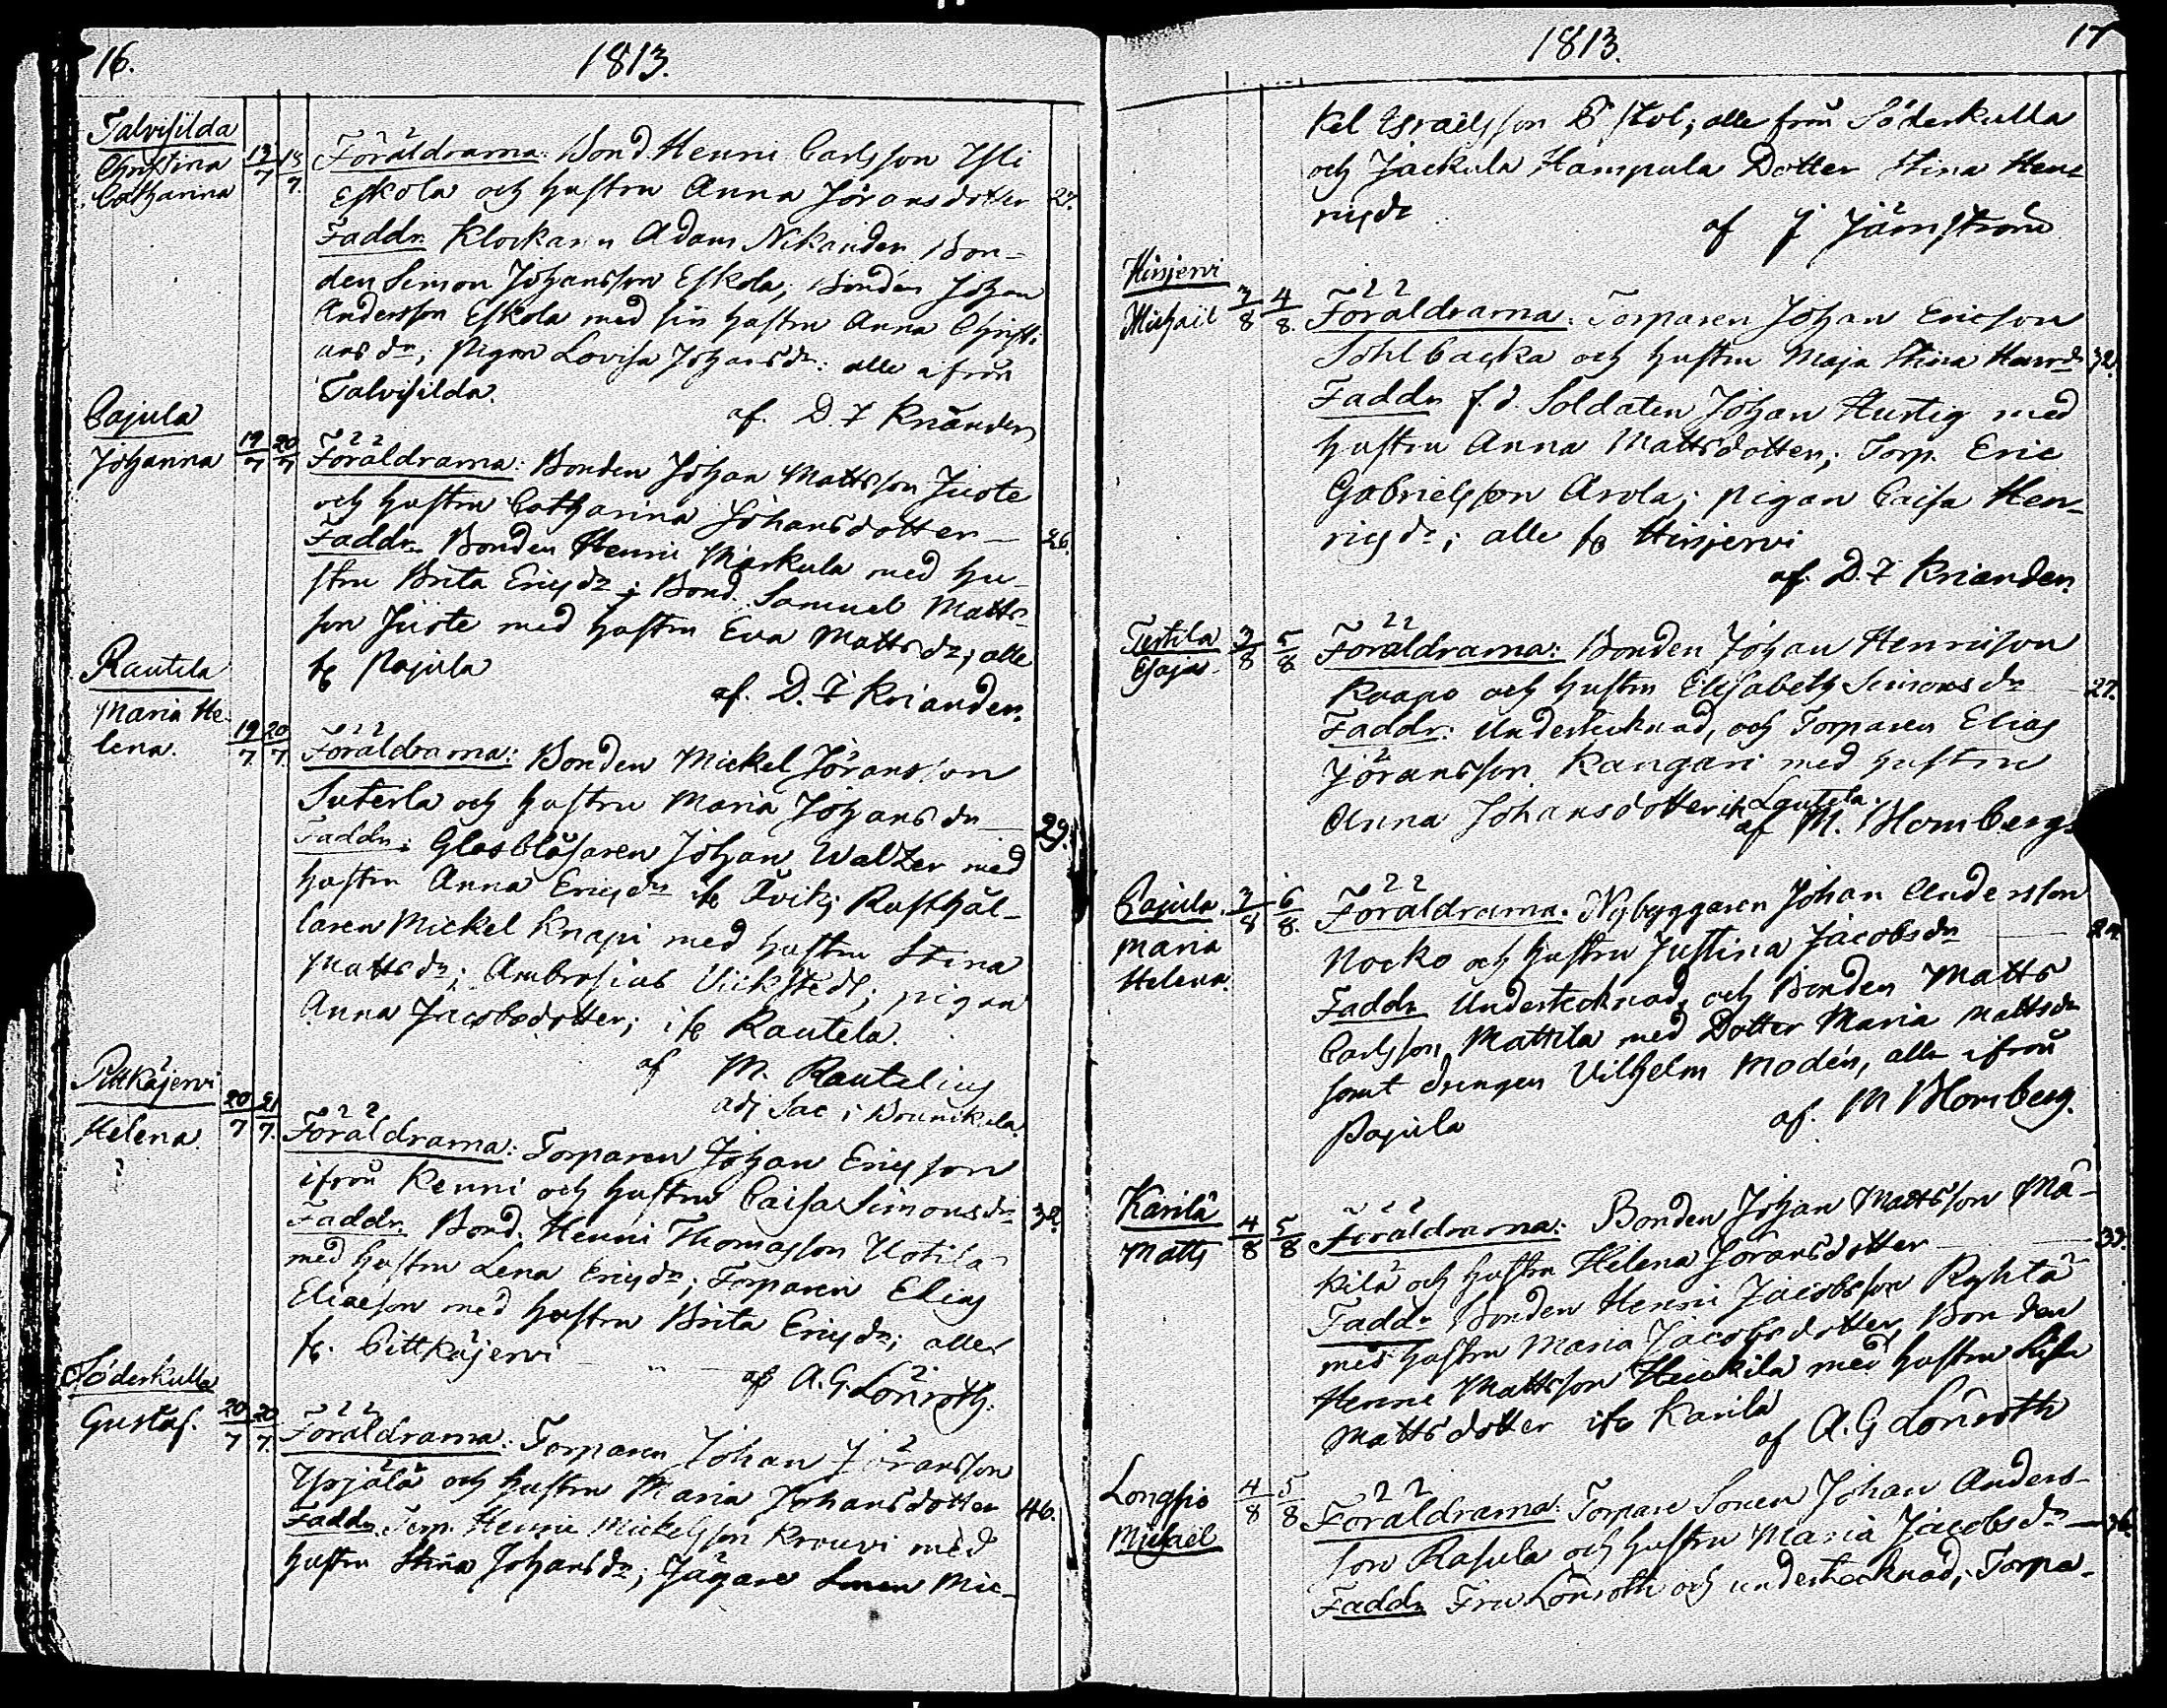 16.
1813.
Talvisilda
Christina
Catharina
13/7 15/7.
Föräldrarna: Bond. Henric Carlsson Yli
Eskola och hustru Anna Jöransdotter 27.
Faddr. Klockaren Adam Nikander Bon-
den Simon Johansson Eskola; Bonden Johan
Andersson Eskola med sin hustru Anna Christi-
ans dr; pigan Lovisa Johansdr: alle ifrån
Talvisilda.
af. D. F Kriander
Cajula
Johanna
19/7 20/7
Föräldrarna: Bonden Johan Mattsson Juote
och hustru Catharina Johansdotter — 26.
Faddr. Bonden Henric Markula med hu-
stru Brita Ericsdr; Bond. Samuel Matts-
son Juote med hustru Eva Mattsdr; alle
fr Pajula
af. D. F Kriander.
Rautela
Maria He-
lena.
19/7 20/7.
Föräldrarna: Bonden Mickel Jöransson
Suterla och hustru Maria Johansdr — 29.
Faddr: Glasblåsaren Johan Walzer med
hustru Anna Ericsdr fr Åvik; Rusthål-
laren Mickel Knapi med hustru Stina
Mattsdr; Ambrosius Vickstedt; pigan
Anna Jacobsdotter; ifr Rautela.
af M. Rautelius
adj Sac i Brunnkala.
Pittkäjervi
Helena
20/7 21/7.
Föräldrarna: Torparen Johan Ericsson
ifrån Kenni och hustru Caisa Simonsdr 32.
Faddr. Bond. Henric Thomasson Uotila
med hustru Lena Ericsdr; Torparen Elias
Eliaeson med hustru Brita Ericsdr; alle
fr. Pittkäjervi
af A. G. Lönroth.
Söderkulla
Gustaf.
20/7 20/7.
Föräldrarna: Torparen Johan Jöransson
Yrjälä och hustru Maria Johansdotter 46.
Faddr. Torp. Henric Mickelsson Krouvi med
hustru Stina Johansdr; Jägare Sonen Mic-
1813.
17
kel Israelsson Pistol; alle från Söderkulla
och Jackula Hampula Dotter Stina Hen-
ricsdr
af J Järnström
Hinjervi
Michael
3/8 4/8.
Föräldrarna: Torparen Johan Ericson
Sohlbacka och hustru Maja Stina Henrdr 32.
Faddr f. d. Soldaten Johan Hurtig med
hustru Anna Mattsdotter; Torp. Eric
Gabrielsson Arola; pigan Caisa Hen-
ricsdr; alle fr Hinjervi
af. D. F Kriander.
Testila
Esajas.
3/8 5/8
Föräldrarna: Bonden Johan Henricson
Knapo och hustru Elisabeth Simonsdr 27.
Faddr: Undertecknad, och Torparen Elias
Jöransson Kangari med hustru
Anna Johansdotter ifr Lautela.
af M. Blomberg
Cajula.
Maria
Helena.
3/8 6/8.
Föräldrarna: Nybyggaren Johan Andersson
Nocko och hustru Justina Jacobsdr
Faddr Undertecknad, och Bonden Matts
Carlsson Mattila med Dotter Maria Mattsdr
samt drengen Vilhelm Modén, alla ifrån
Pajula
af. M Blomberg.
Karilä
Matts
4/8 5/8
Föräldrarna: Bonden Johan Mattsson Mä-
kilä och hustru Helena Jöransdotter 33.
Faddr Bonden Henric Jacobsson Ryhtä
med hustru Maria Jacobsdotter, Bonden
Henric Mattsson Heickila med hustru Lisa
Mattsdotter ifr Karilä
af A. G Lönroth
Longsio
Michael
4/8 5/8
Föräldrarna: Torpare Sonen Johan Anders-
son Rasula och hustru Maria Jacobsdr — 36.
Faddr Fru Lönroth och undertecknad; Torpa-